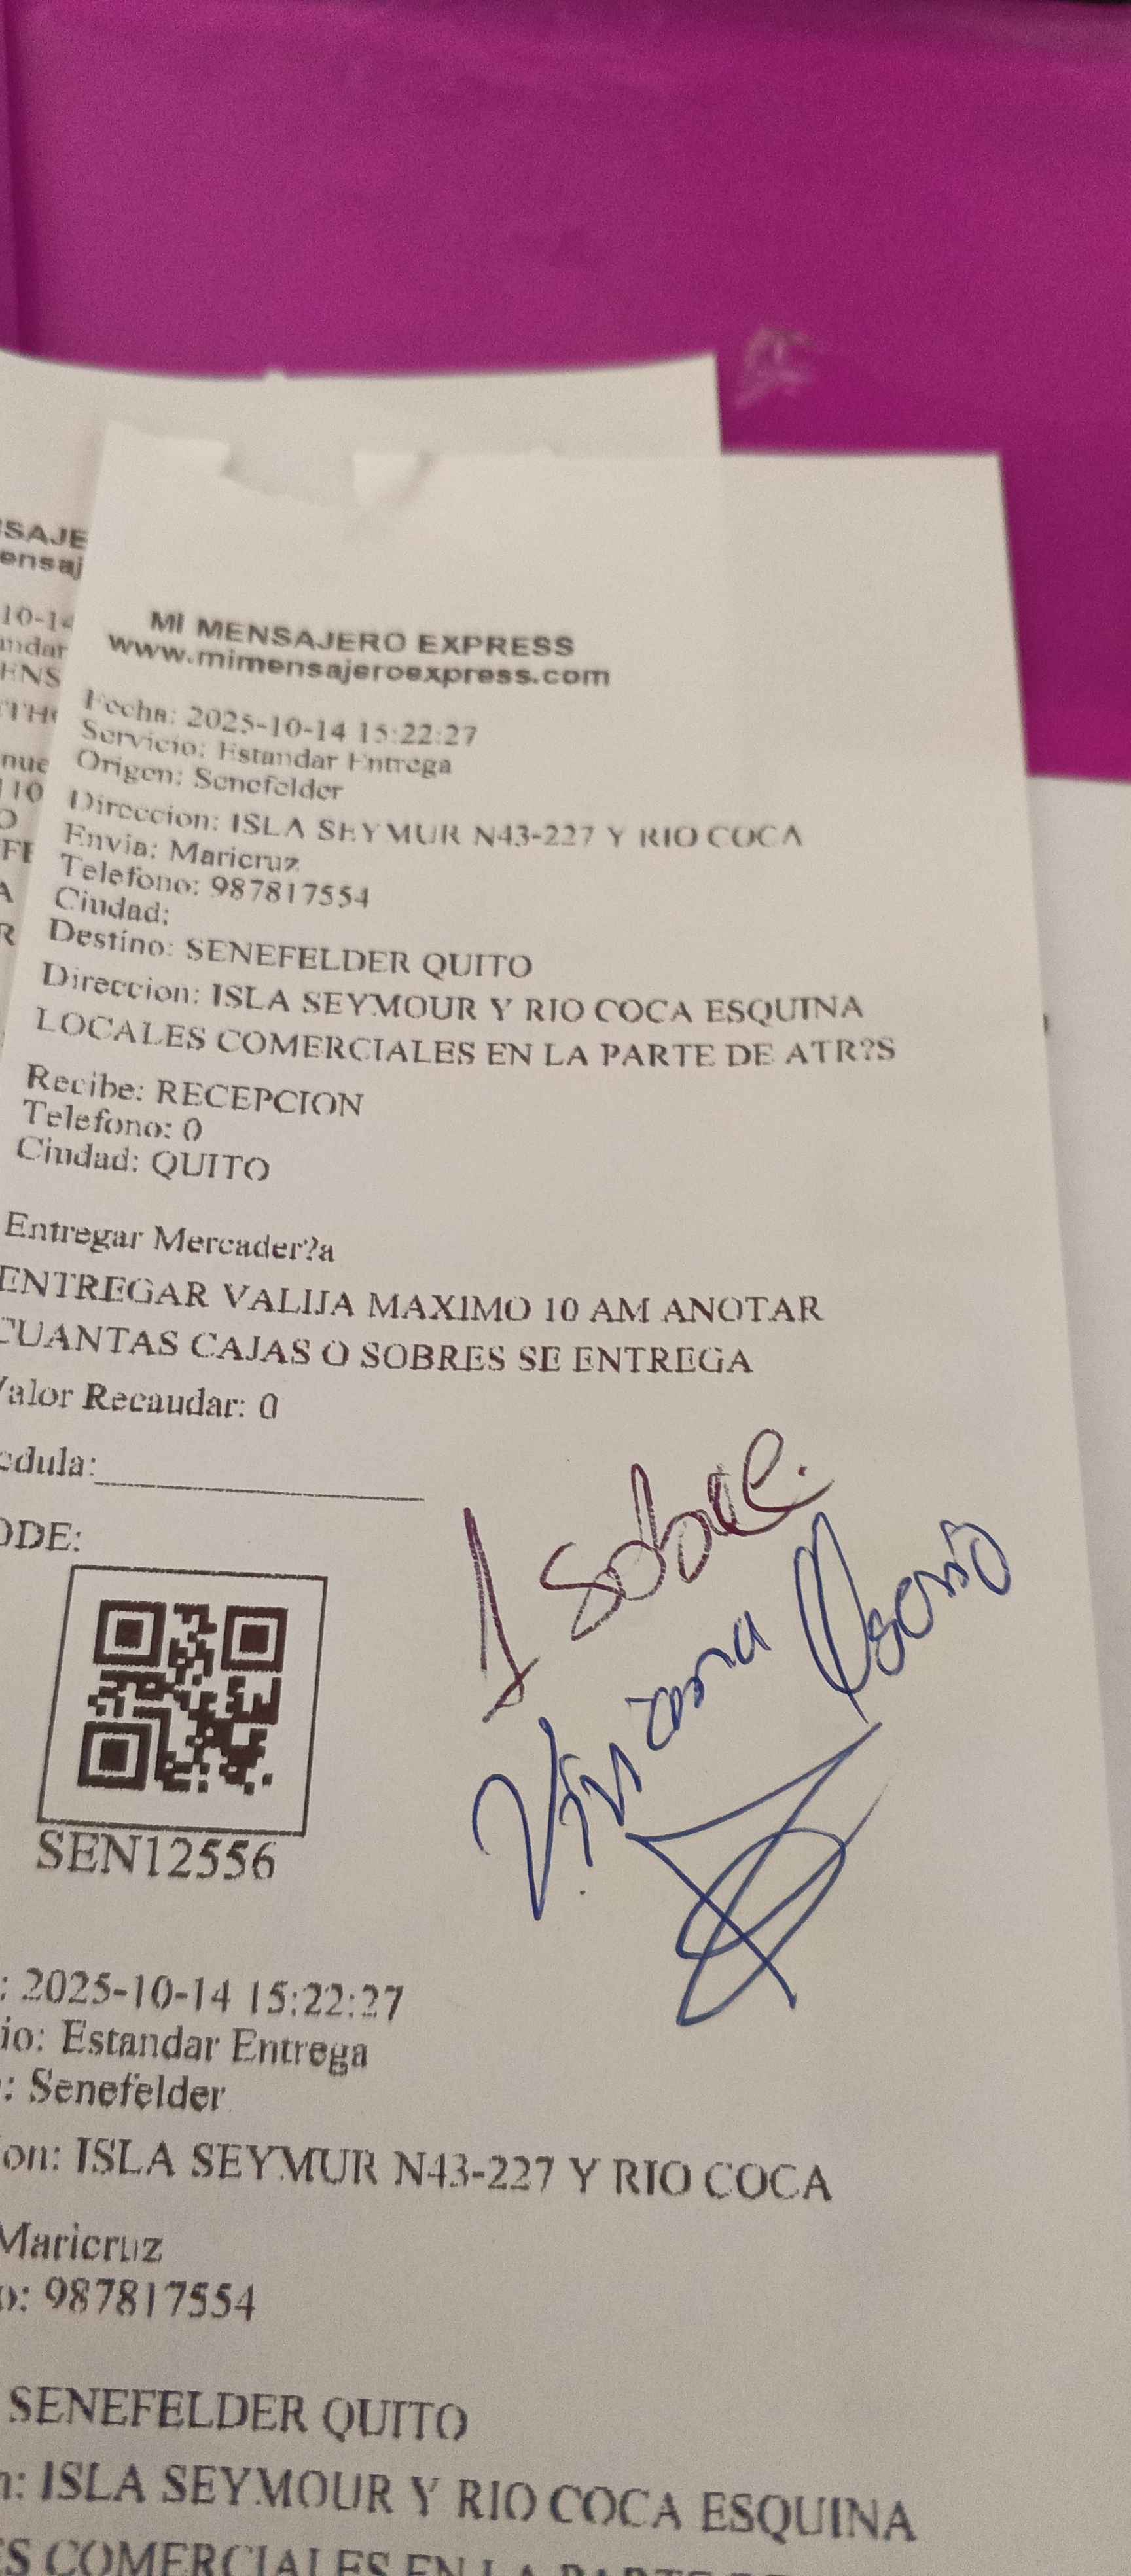 MI MENSAJERO EXPRESS
www.mimensajeroexpress.com
Fecha: 2025-10-14 15:22:27
Servicio: Estandar Entrega
Origen: Senefelder
Direccion: ISLA SEYMUR N43-227 Y RIO COCA
Envia: Maricruz
Telefono: 987817554
Ciudad:
Destino: SENEFELDER QUITO
Direccion: ISLA SEYMOUR Y RIO COCA ESQUINA
LOCALES COMERCIALES EN LA PARTE DE ATR?S
Recibe: RECEPCION
Telefono: 0
Ciudad: QUITO
Entregar Mercader?a
ENTREGAR VALIJA MAXIMO 10 AM ANOTAR
CUANTAS CAJAS O SOBRES SE ENTREGA
Valor Recaudar: 0
edula:
ODE:
1 sobre.
Viviana Osorio
SEN12556
: 2025-10-14 15:22:27
io: Estandar Entrega
: Senefelder
on: ISLA SEYMUR N43-227 Y RIO COCA
Maricruz
o: 987817554
SENEFELDER QUITO
n: ISLA SEYMOUR Y RIO COCA ESQUINA
ES COMERCIALES EN LA PARTE DE